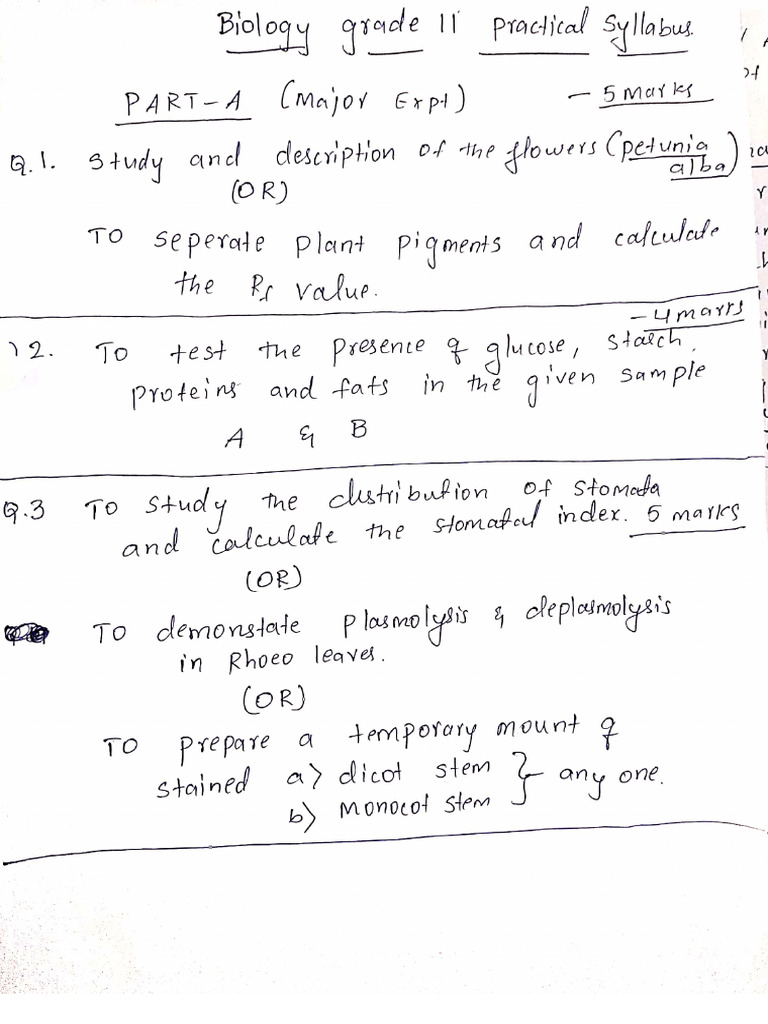 Biology grade 11 Practical Syllabus.
PART-A (Major Expt) - 5 marks
Q.1. Study and description of the flowers (petunia
alba)
(OR)
TO seperate plant pigments and calculate
the Rf value.
- 4 marks
2. TO test the presence of glucose, starch,
proteins and fats in the given sample
A & B
Q.3 TO study the distribution of stomata
and calculate the stomatal index. 5 marks
(OR)
TO demonstate plasmolysis & deplasmolysis
in Rhoeo leaves.
(OR)
TO prepare a temporary mount of
stained a) dicot stem } any one.
b) monocot stem